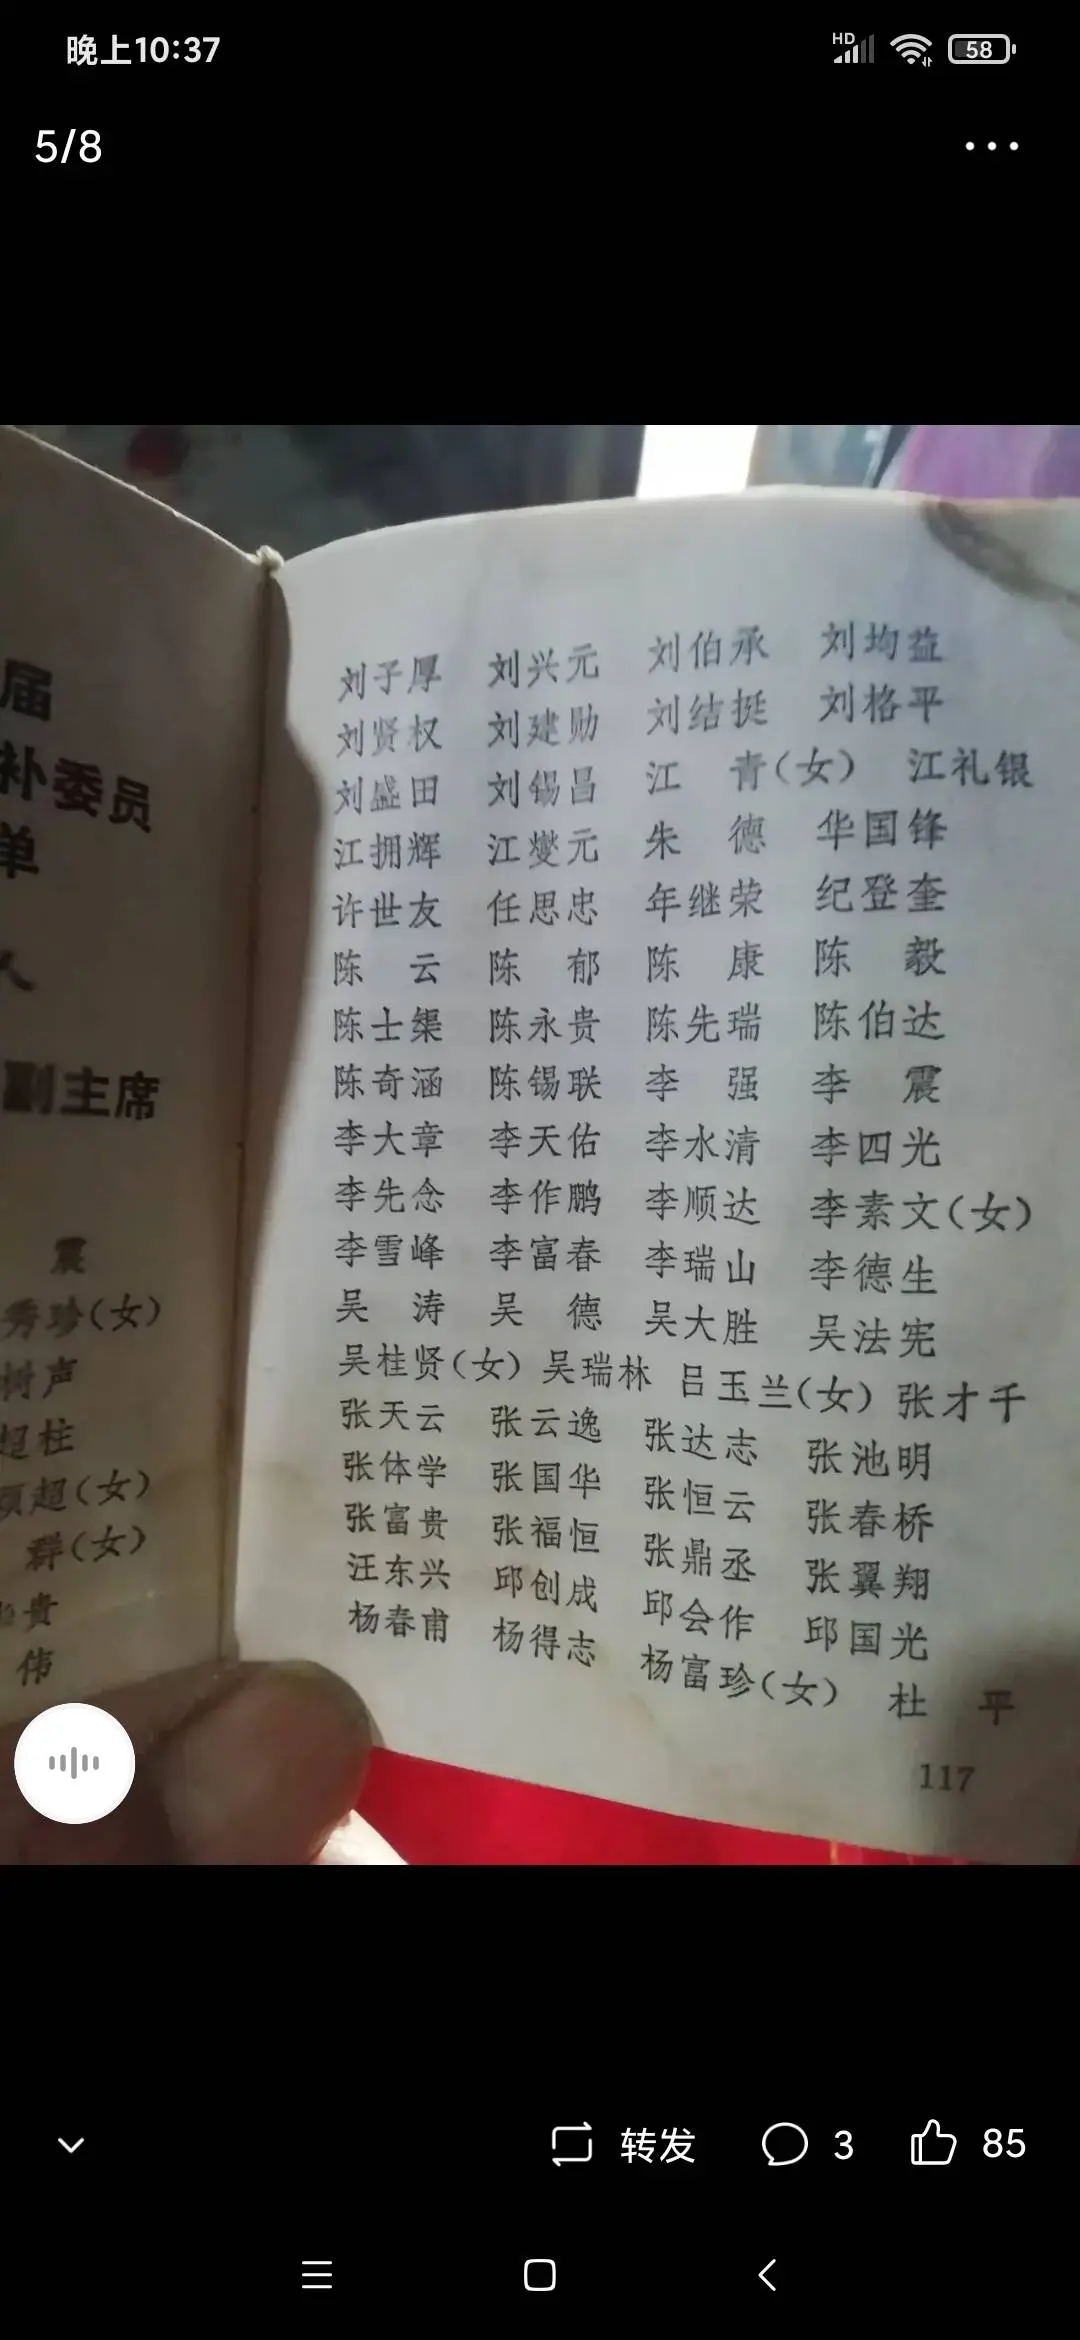 晚上10:37
HD
58
5/8
届
补委员
单
人
副主席
震
秀珍(女)
树声
超柱
颖超(女)
群(女)
贵
伟
刘子厚 刘兴元 刘伯承 刘均益
刘贤权 刘建勋 刘结挺 刘格平
刘盛田 刘锡昌 江 青(女) 江礼银
江拥辉 江燮元 朱 德 华国锋
许世友 任思忠 年继荣 纪登奎
陈 云 陈 郁 陈 康 陈 毅
陈士榘 陈永贵 陈先瑞 陈伯达
陈奇涵 陈锡联 李 强 李 震
李大章 李天佑 李水清 李四光
李先念 李作鹏 李顺达 李素文(女)
李雪峰 李富春 李瑞山 李德生
吴 涛 吴 德 吴大胜 吴法宪
吴桂贤(女) 吴瑞林 吕玉兰(女) 张才千
张天云 张云逸 张达志 张池明
张体学 张国华 张恒云 张春桥
张富贵 张福恒 张鼎丞 张翼翔
汪东兴 邱创成 邱会作 邱国光
杨春甫 杨得志 杨富珍(女) 杜 平
117
转发 3 85